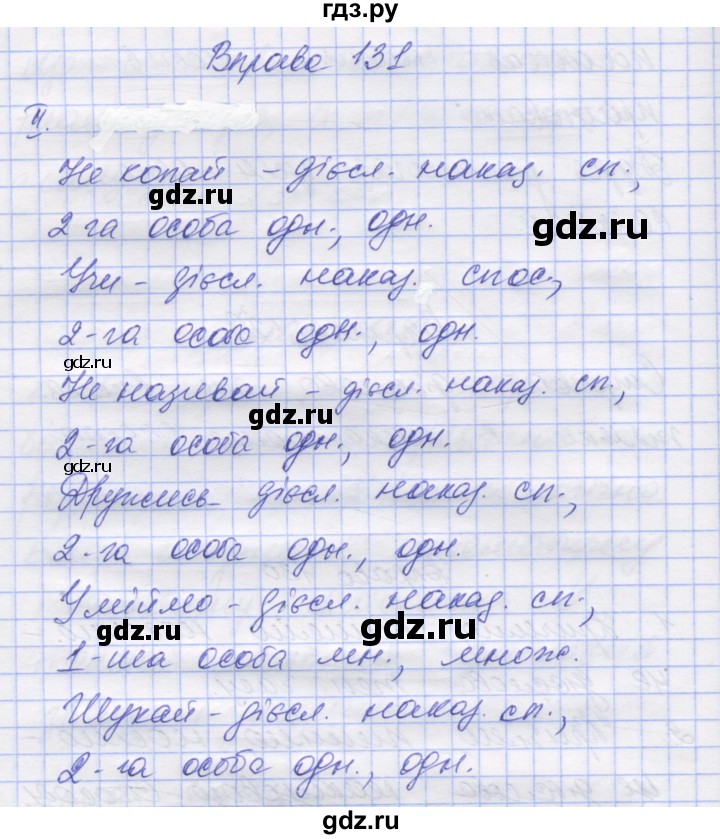 гдз.ру
Вправа 131
II.
Не копай - дієсл. наказ. сп.,
gdz.ru
2 га особа одн., одн.
gdz.ru
Учи - дієсл. наказ. спос.,
2-га особа одн., одн.
gdz.ru
Не називай - дієсл. наказ. сп.,
gdz.ru
2-га особа одн., одн.
gdz.ru
Дружись - дієсл. наказ. сп.,
gdz.ru
2-га особа одн., одн.
Уміймо - дієсл. наказ. сп.,
gdz.ru
1-ша особа мн., множ.
Шукай - дієсл. наказ. сп.,
gdz.ru
2-га особа одн., одн.